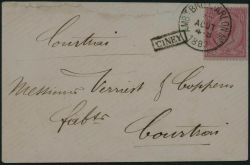 CINEY
AOUT
Courtrai
Messieurs Verriest & Coppens
fabts
Courtrai